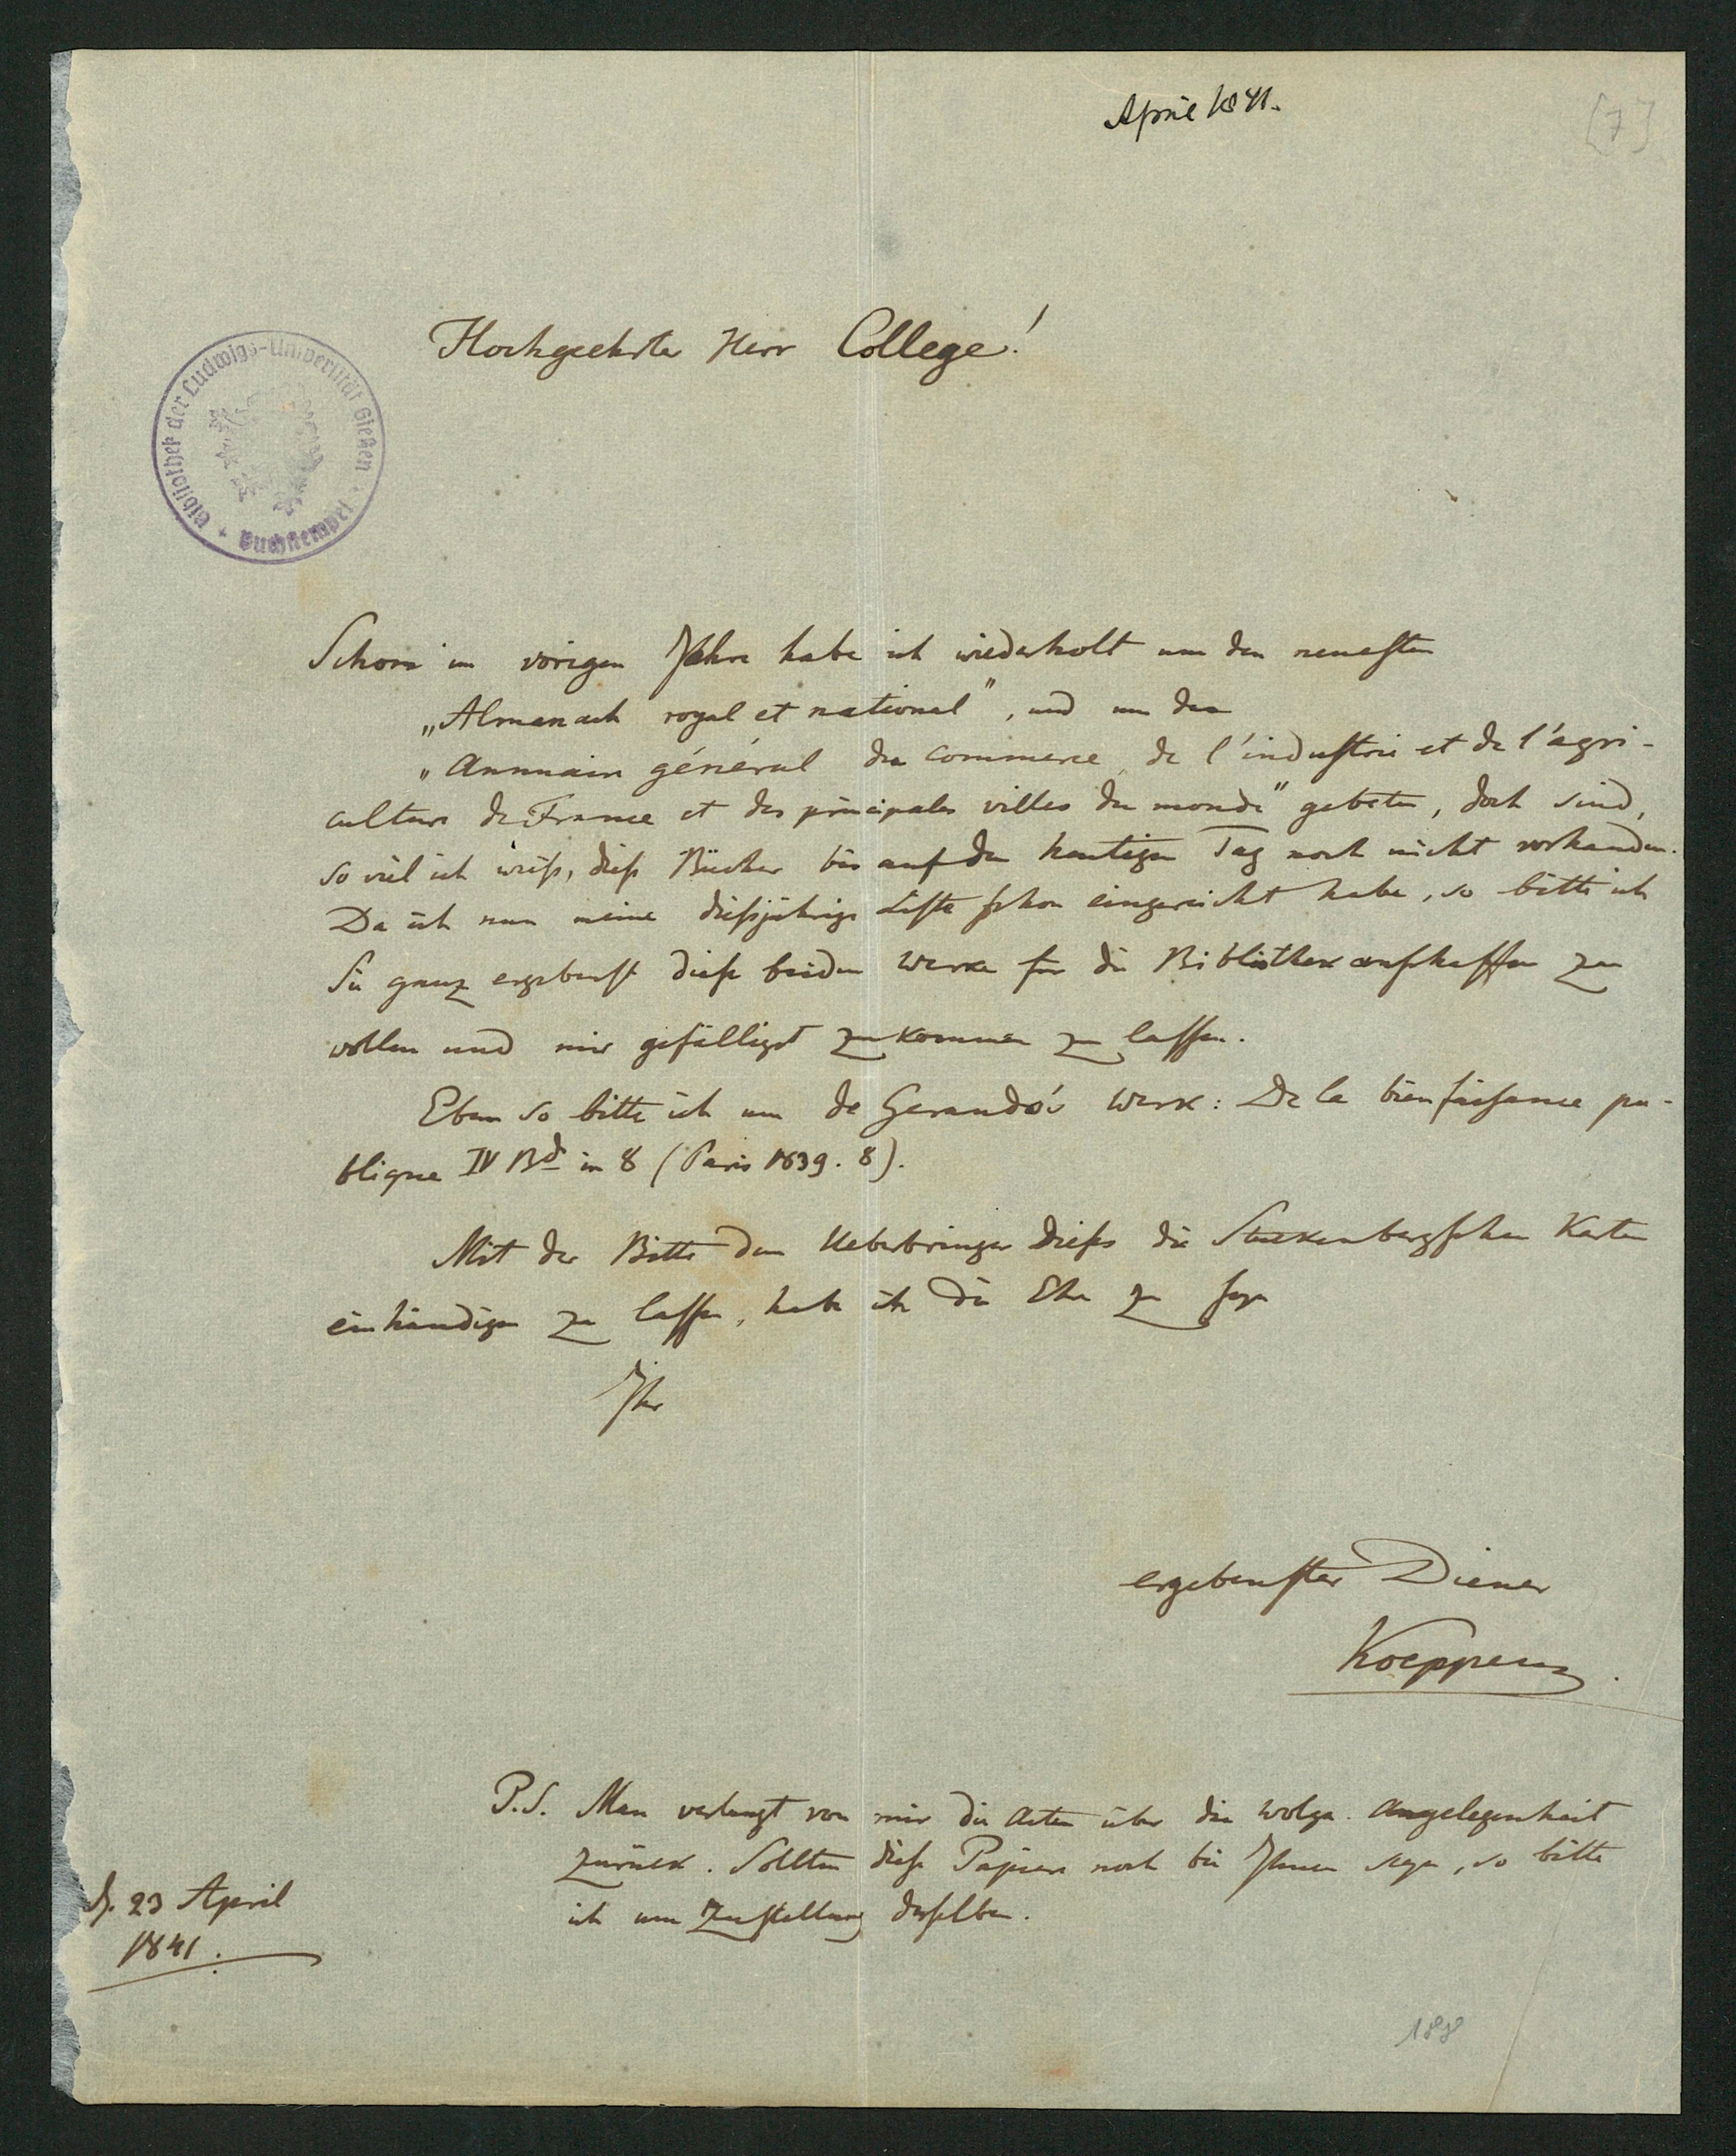 April 1841.
[7]
Hochgeehrter Herr College!
Bibliothek der Ludwigs-Universität Gießen
Buchstempel
Schon im vorigen Jahre habe ich wiederholt um den neuesten
„Almanach royal et national", und um den
„Annuaire général du commerce, de l'industrie et de l'agri-
culture de France et des principales villes du monde" gebeten, doch sind,
so viel ich weiss, diese Bücher bis auf den heutigen Tag noch nicht vorhanden.
Da ich nun meine diesjährige Liste schon eingereicht habe, so bitte ich
Sie ganz ergebenst diese beiden Werke für die Bibliothek anschaffen zu
wollen und mir gefälligst zukommen zu lassen.
Eben so bitte ich um de Gerando's Werk: De la bienfaisance pu-
blique IV Bde in 8 (Paris 1839. 8).
Mit der Bitte dem Ueberbringer dieses die Stuckenbergschen Karten
einhändigen zu lassen, habe ich die Ehre zu seyn
Ihr
ergebenster Diener
Koeppen.
P.S. Man verlangt von mir die Acten über die Wolga-Angelegenheit
zurück. Sollten diese Papiere noch bei Ihnen seyn, so bitte
ich um Zustellung derselben.
d. 23 April
1841.
188